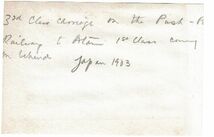 3rd Class carriage on the Push-
Railway to Atami 1st Class coming
on behind Japan 1903